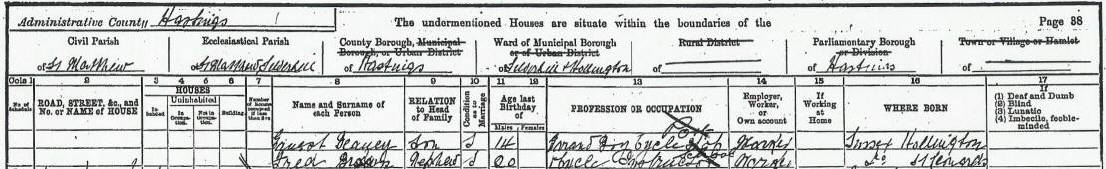 Administrative County Hastings The undermentioned Houses are situate within the boundaries of the Page 38
Civil Parish Ecclesiastical Parish County Borough, Municipal Borough, or Urban District Ward of Municipal Borough or of Urban District Rural District Parliamentary Borough or Division Town or Village or Hamlet
of St Matthew of St Matthew Silverhill of Hastings of Silverhill & Hollington of of Hastings of
Cols 1 2 3 4 5 6 7 8 9 10 11 12 13 14 15 16 17
No. of Schedule ROAD, STREET, &c., and No. or NAME of HOUSE HOUSES Inhabited Uninhabited In Occupation Not in Occupation Building Number of Rooms occupied if less than five Name and Surname of each Person RELATION to Head of Family Condition as to Marriage Age last Birthday of Males Females PROFESSION OR OCCUPATION Employer, Worker, or Own account If Working at Home WHERE BORN If (1) Deaf and Dumb (2) Blind (3) Lunatic (4) Imbecile, feeble-minded
Ernest Son S 14 Errand Boy Cycle Shop Worker Sussex Hollington
Fred Nephew S 20 Cycle Instructor Worker do St Leonards